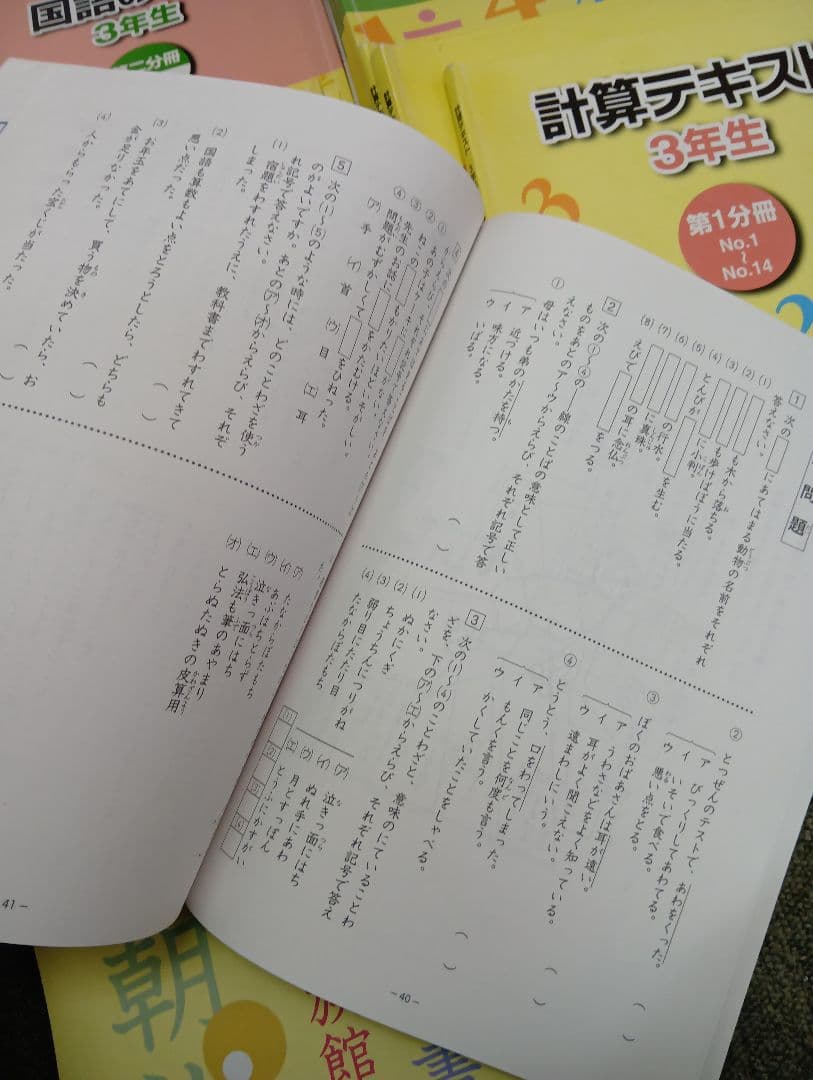 3年生
計算テキスト
3年生
第1分冊
No.1
~
No.14
問題
1 次の□にあてはまる動物の名前をそれぞれ
答えなさい。
(1) □も木から落ちる。
(2) □も歩けばぼうに当たる。
(3) □に小判
(4) とんびが□を生む。
(5) □に真珠。
(6) □の行水。
(7) □の耳に念仏。
(8) えびで□をつる。
2 次の①~④の――線のことばの意味として正しい
ものをあとのア~ウからえらび、それぞれ記号で答
えなさい。
① 母はいつも弟のかたを持つ。
ア 近づける。
イ 味方になる。
ウ いばる。
( )
② とつぜんのテストで、あわをくった。
ア びっくりしてあわてる。
イ いそいで食べる。
ウ 悪い点をとる。
( )
③ ぼくのおばあさんは耳が遠い。
ア うわさなどをよく知っている。
イ 耳がよく聞こえない。
ウ 遠まわしにいう。
( )
④ とうとう、口をわってしまった。
ア 同じことを何度も言う。
イ もんくを言う。
ウ かくしていたことをしゃべる。
( )
3 次の(1)~(4)のことわざと、意味のにていることわ
ざを、下の(ア)~(エ)からえらび、それぞれ記号で答え
なさい。
(1) ぬかにくぎ
(2) ちょうちんにつりがね
(3) 弱り目にたたり目
(4) たなからぼたもち
(ア) 泣きっ面にはち
(イ) ぬれ手にあわ
(ウ) 月とすっぽん
(エ) とうふにかすがい
(1) (2) (3) (4)
-40-
③ 先生のお話に□も
④ 問題がむずかしくて□をかたむける。
□をひねった。
(ア) 手 (イ) 首 (ウ) 目 (エ) 耳
5 次の(1)~(5)のような時には、どのことわざを使う
のがよいですか。あとの(ア)~(オ)からえらび、それぞ
れ記号で答えなさい。
(1) 宿題をわすれたうえに、教科書までわすれてきて
しまった。
( )
(2) 国語も算数もよい点をとろうとしたら、どちらも
悪い点だった。
( )
(3) お年玉をあてにして、買う物を決めていたら、お
金が足りなかった。
( )
(4) 人からもらった宝くじが当たった。
(ア) たなからぼたもち
(イ) あぶはちとらず
(ウ) 泣きっ面にはち
(エ) 弘法も筆のあやまり
(オ) とらぬたぬきの皮算用
41-
朝
館